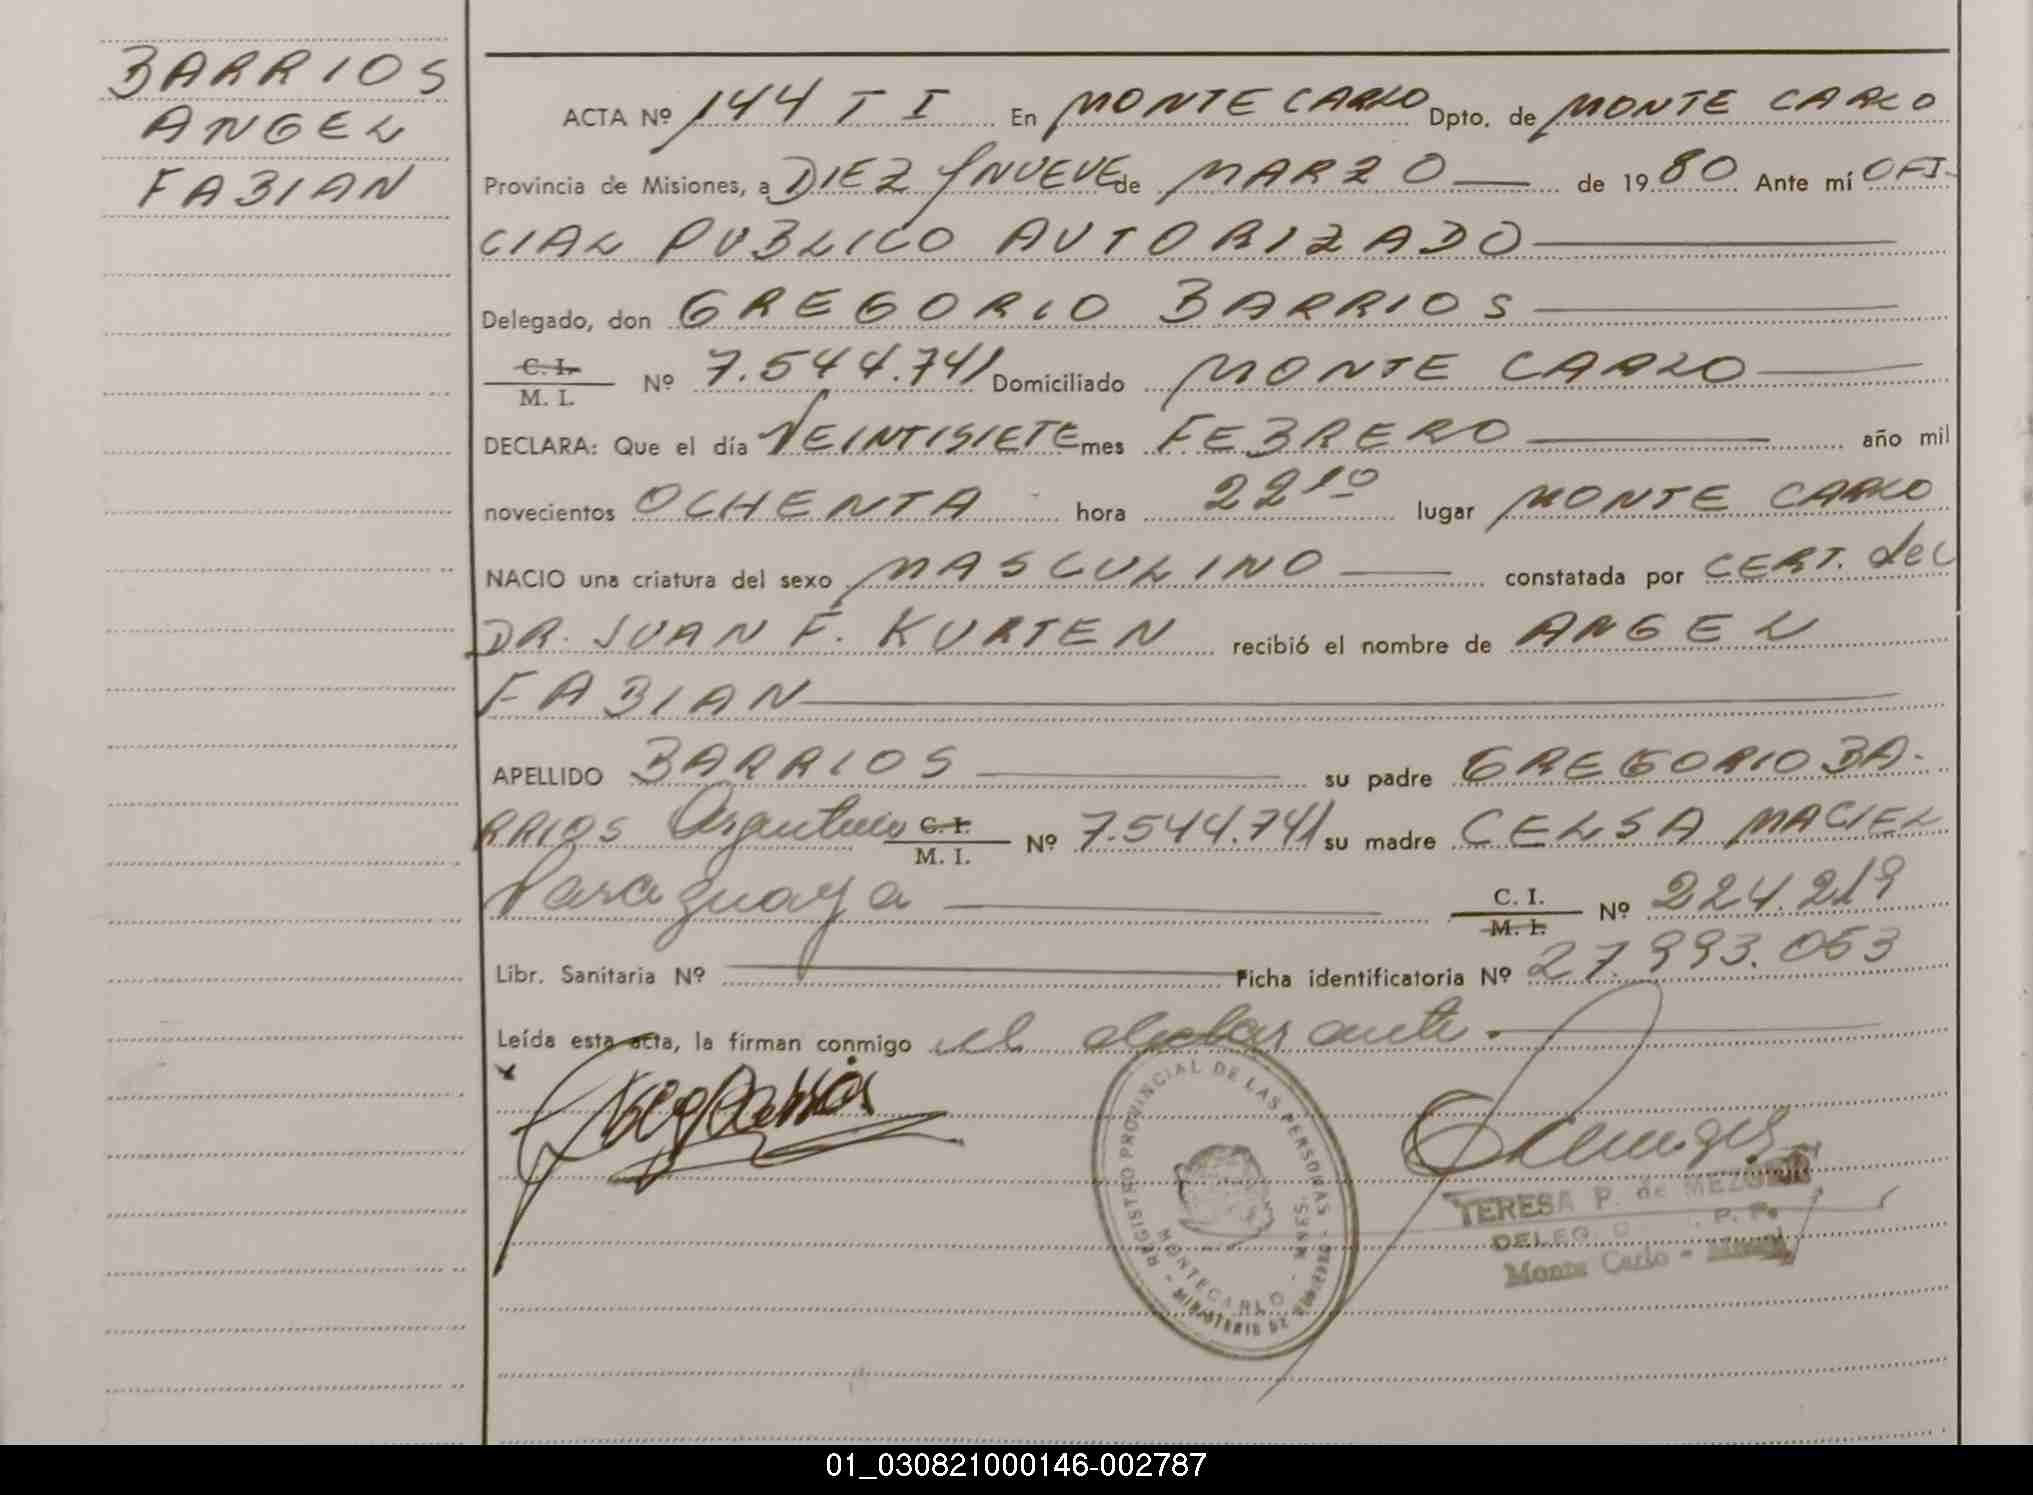 BARRIOS
ANGEL
FABIAN
ACTA Nº 144 T I En MONTE CARLO Dpto. de MONTE CARLO
Provincia de Misiones, a DIEZ Y NUEVE de MARZO de 1980 Ante mí OFI-
CIAL PUBLICO AUTORIZADO
Delegado, don GREGORIO BARRIOS
C. I.
M. I. Nº 7.544.741 Domiciliado MONTE CARLO
DECLARA: Que el día VEINTISIETE mes FEBRERO año mil
novecientos OCHENTA hora 22 10 lugar MONTE CARLO
NACIO una criatura del sexo MASCULINO constatada por CERT. del
DR. JUAN F. KURTEN recibió el nombre de ANGEL
FABIAN
APELLIDO BARRIOS su padre GREGORIO BA-
RRIOS Argentino C. I. M. I. Nº 7.544.741 su madre CELSA MACIEL
Paraguaya C. I. M. I. Nº 224.219
Libr. Sanitaria Nº Ficha identificatoria Nº 27.993.053
Leída esta acta, la firman conmigo el declarante.
REGISTRO PROVINCIAL DE LAS PERSONAS - MINISTERIO DE GOBIERNO
MONTECARLO - MNES.
TERESA P. de
DELEG P. P.
Monte Carlo -
01_030821000146-002787